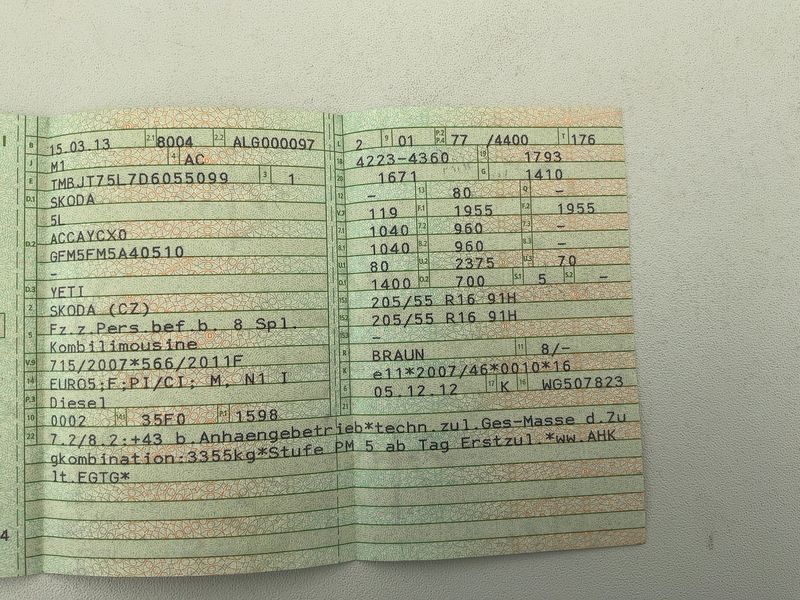 B 15.03.13 2.1 8004 2.2 ALG000097
J M1 4 AC
E TMBJT75L7D6055099 3 1
D.1 SKODA
5L
D.2 ACCAYCX0
GFM5FM5A40510
–
D.3 YETI
2 SKODA (CZ)
5 Fz.z.Pers.bef.b. 8 Spl.
Kombilimousine
V.9 715/2007*566/2011F
14 EURO5;F;PI/CI; M, N1 I
P.3 Diesel
10 0002 14.1 35F0 P.1 1598
L 2 9 01 P.2 P.4 77 /4400 T 176
18 4223-4360 19 1793
20 1671 G 1410
12 – 13 80 Q –
V.7 119 F.1 1955 F.2 1955
7.1 1040 7.2 960 7.3 –
8.1 1040 8.2 960 8.3 –
U.1 80 U.2 2375 U.3 70
O.1 1400 O.2 700 S.1 5 S.2 –
15.1 205/55 R16 91H
15.2 205/55 R16 91H
15.3 –
R BRAUN 11 8/–
K e11*2007/46*0010*16
6 05.12.12 17 K 16 WG507823
21
22 7.2/8.2:+43 b.Anhaengebetrieb*techn.zul.Ges-Masse d.Zu
gkombination:3355kg*Stufe PM 5 ab Tag Erstzul.*ww.AHK
lt.EGTG*
4